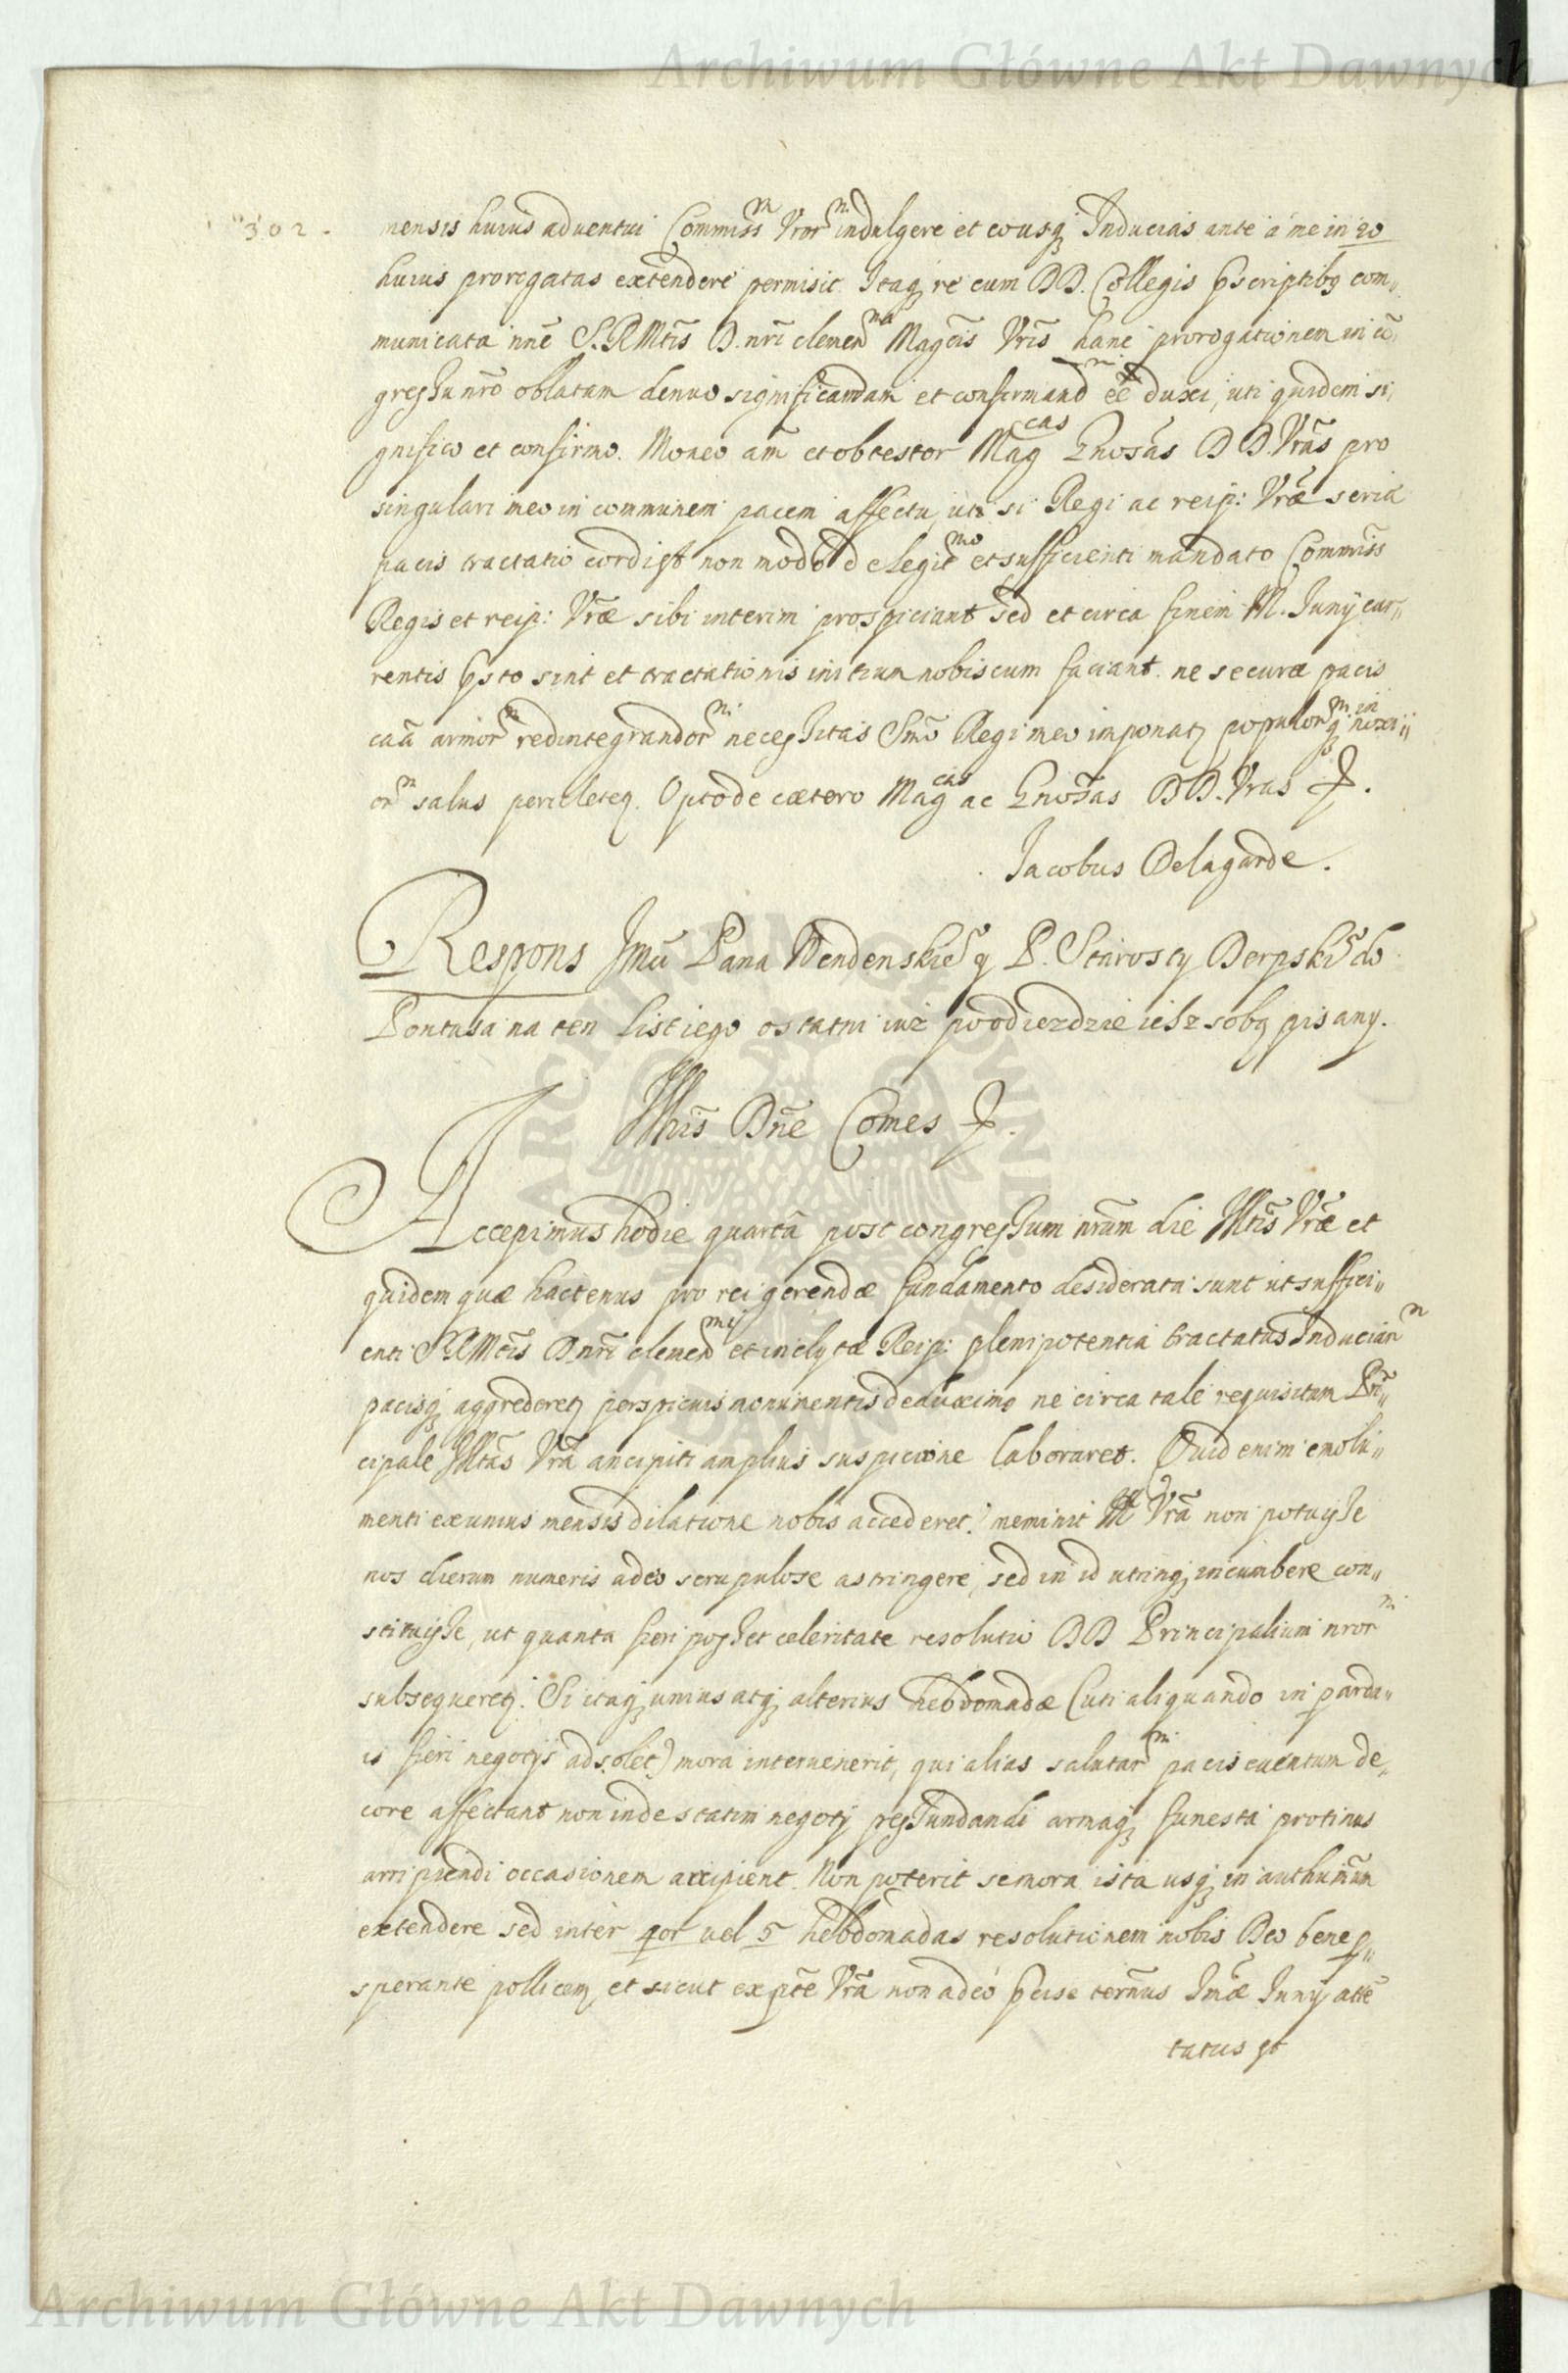 Archiwum Główne Akt Dawnych
302.
mensis huius aduentui Commiss Vror^m indulgere et eousq; Inducias ante á me in 20
huius prorogatas extendere permisit. Itaq; re cum DD. Collegis p̃scriptibq com„
municata nñe S.RMtis D. nrĩ clemen^mi Magcis Vrĩs hanc prorogationem in cõ„
gressu nrõ oblatam denuo significandam et confirmand^m eẽ duxi, uti quidem si„
gnifico et confirmo. Moneo am̃ et obtestor Mag^cas Gnosas DD. Vrãs pro
singulari meo in communem pacem affectu, uti si Regi ac reip: Vræ seria
pacis tractatio cordi st non modo de legit^mo et sufficienti mandato Commiss
Regis et reip: Vræ sibi interim prospiciant sed et circa finem M. Iunij cur„
rentis p̃sto sint et tractationis initium nobiscum faciant. ne securæ pacis
caã armor^m redintegrandor^m necessitas Smõ Regi meo imponatz populor^m q; innoxi„
or^m salus pericletez. Opto de cætero Mag^cas ac Gnosas DD. Vras &.
Jacobus Delagarde.
Respons Jmũ Pana Wendenskieº y P. Starosty Derpskiº do
Pontusa na ten list iego ostatni iuż po odiezdzie iesz sobą pisany.
Illris Dñe Comes &.
Accepimus hodie quartã post congressum nrũm die Illtis Vræ et
quidem quæ hactenus pro rei gerendæ fundamento desiderata sunt ut suffici„
enti S.RMtis D. nrĩ clemen^mi et inclytæ Reip: plenipotentia tractatus Induciar^m
pacisq; aggrederetz perspicuis monumentis deduximq ne circa tale requisitum Prĩ„
cipale Illtas Vrã ancipiti amplius suspicione laboraret. Quid enim emolu„
menti ex unius mensis dilatione nobis accederet? meminit Ill Vrã non potuisse
nos dierum numeris adeo scrupulose astringere, sed in id utrinq; incumbere con„
stituisse, ut quanta fieri posset celeritate resolutio DD Principalium nror^m
subsequeretz. Si itaq; unius atq; alterius hebdomadæ (uti aliquando in p arda„
is fieri negotijs adsolet) mora interuenerit, qui alias salutar^m pacis euentum de„
core affectant non inde statim negotij pessundandi armaq; funesta protinus
arripiendi occasionem accipient. Non poterit se mora ista usq; in authumnum
extendere sed inter 4or uel 5 hebdomadas resolutionem nobis Deo bene p„
sperante pollicemz et sicut ex pte Vrã non adeo p̃cise terminus Jmæ Iunij atte„
tatus st
Archiwum Główne Akt Dawnych